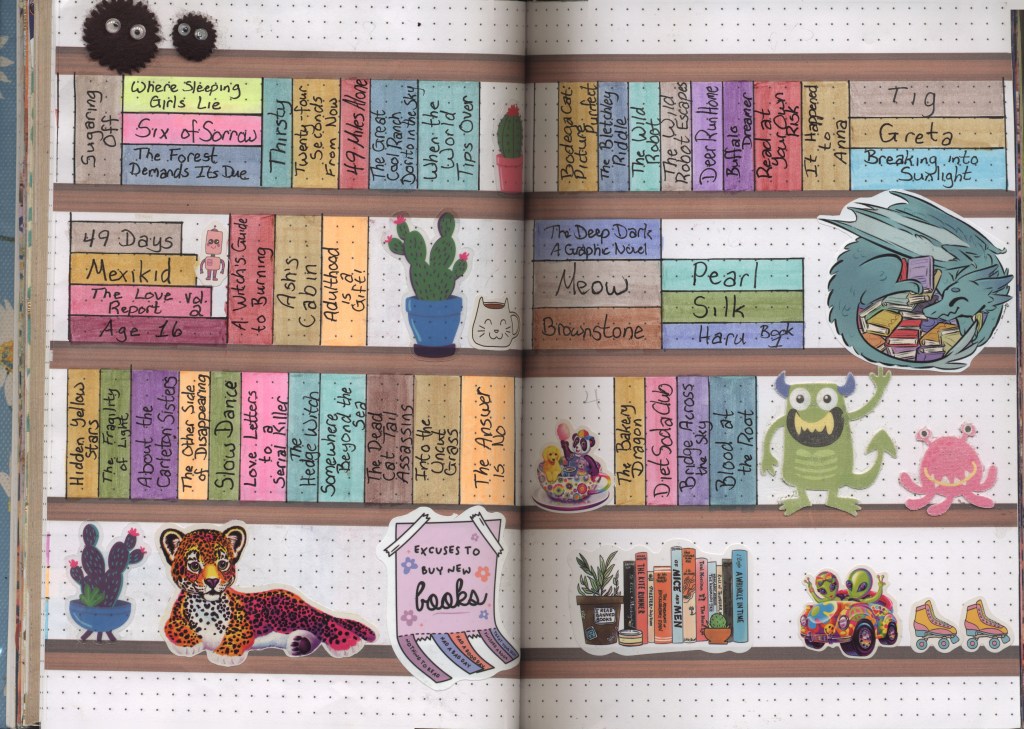 Sugaring
Off
Where Sleeping
Girls Lie
Six of Sorrow
The Forest
Demands Its Due
Thirsty
Twenty-four
Seconds
From Now
49 Miles Alone
The Great
Cool Ranch
Dorito in the Sky
When the
World
Tips Over
Bodega Cat:
Picture
Purrfect
The Bletchley
Riddle
The Wild
Robot
The Wild
Robot Escapes
Deer Run Home
Buffalo
Dreamer
Read at
Your Own
Risk
It Happened
to
Anna
Tig
Greta
Breaking into
Sunlight
49 Days
Mexikid
The Love
Report Vol.
2
Age 16
A Witch's Guide
to Burning
Ash's
Cabin
Adulthood
is a
Gift!
The Deep Dark
A Graphic Novel
Meow
Brownstone
Pearl
Silk
Haru Book
1
Hidden Yellow
Stars
The Fragility
of Light
About the
Carleton Sisters
The Other Side
of Disappearing
Slow Dance
Love Letters
to a
Serial Killer
The
Hedge Witch
Somewhere
Beyond the
Sea
The Dead
Cat Tail
Assassins
Into the
Uncut
Grass
The Answer
Is No
The Bakery
Dragon
Diet Soda Club
Bridge Across
the Sky
Blood at
the Root
EXCUSES TO
BUY NEW
books
NOTHING TO READ
THE KITE RUNNER
OF MICE AND MEN
A WRINKLE IN TIME